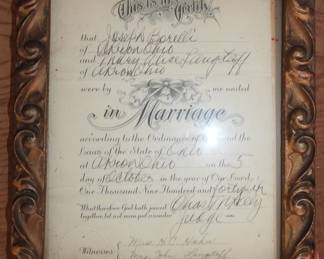 This is to Certify
that Joseph Borelli
of Akron Ohio
and Mary Alice Langstaff
of Akron Ohio
were by me united
in Marriage
according to the Ordinance of God and the
Laws of the State of Ohio
at Akron Ohio on the 5
day of October in the year of Our Lord,
One Thousand Nine Hundred and
What therefore God hath joined
together, let not man put asunder
Judge
Witnesses Mrs. H.C.
Mrs. John Langstaff